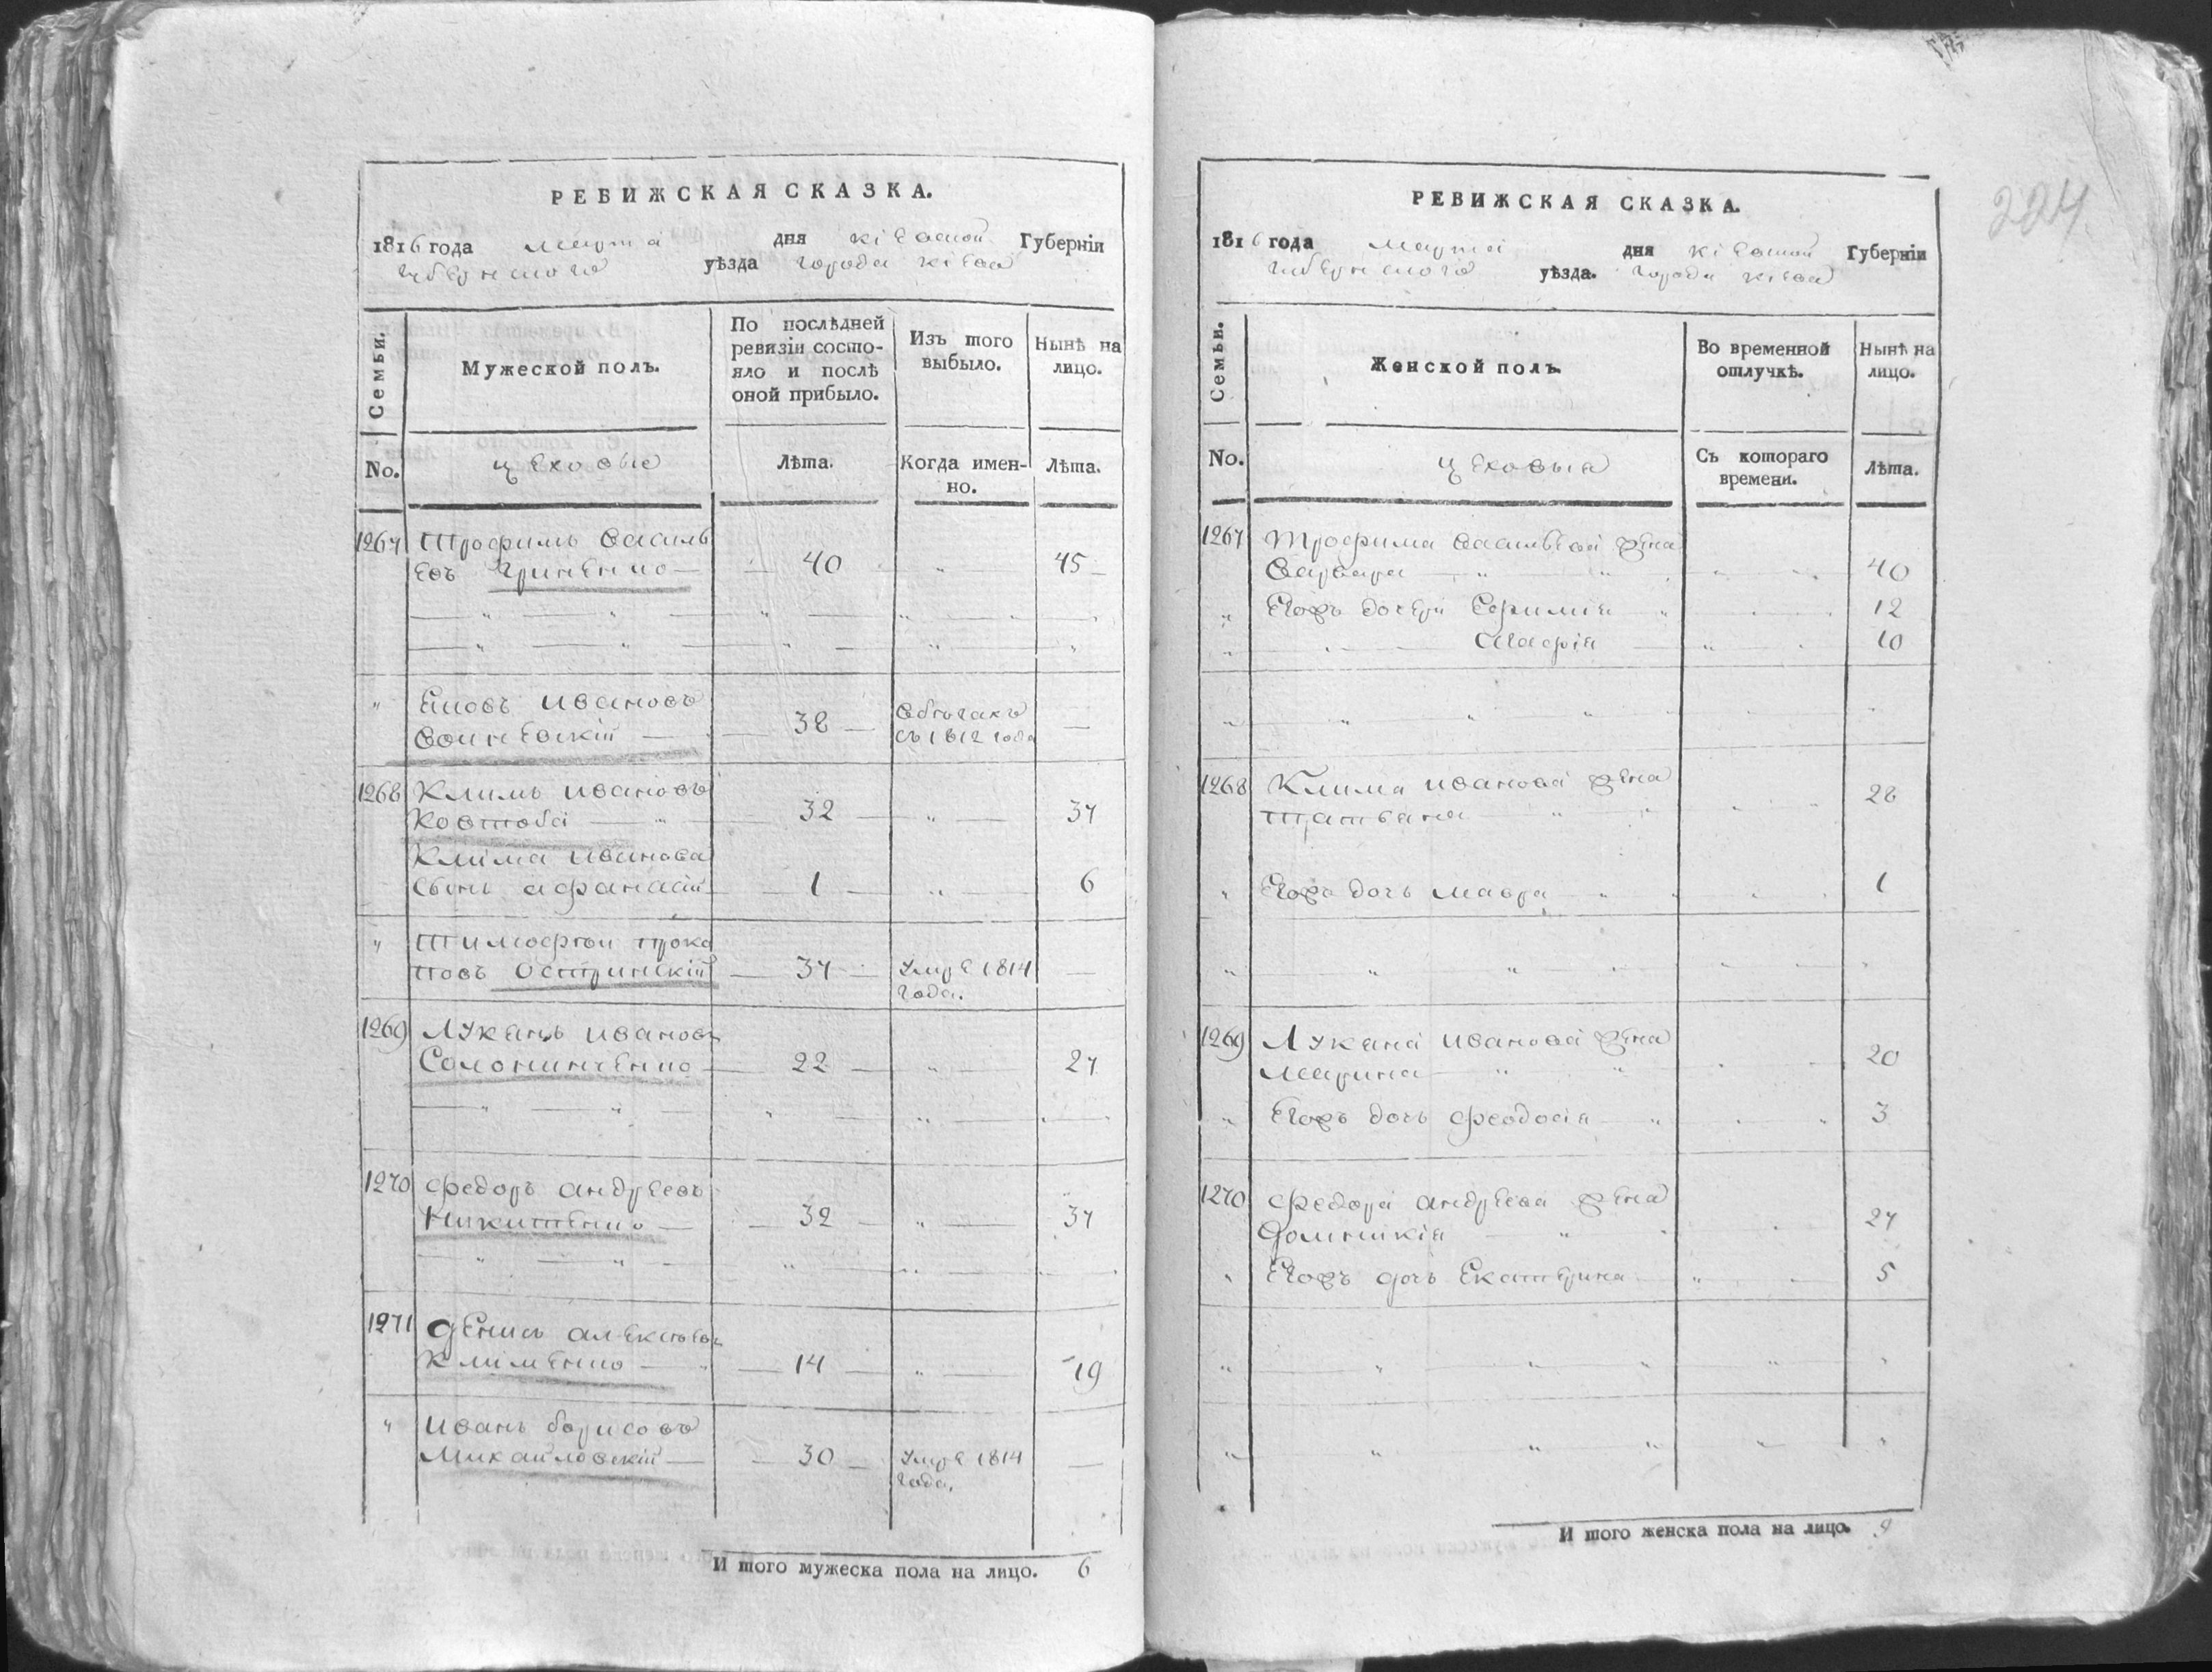 РЕВИЖСКАЯ СКАЗКА.
1816 года марта дня кіевской Губерніи
губернского уѣзда города кіева
Семьи.
Мужеской полъ.
По послѣдней
ревизіи состо-
яло и послѣ
оной прибыло.
Изъ того
выбыло.
Нынѣ на
лицо.
No.
цеховые
Лѣта.
Когда имен-
но.
Лѣта.
1267 Трофимъ василь
евъ Гриненко 40 45
Яковъ ивановъ
38
съ 1812 года
1268 Климъ ивановъ
Ковтоба 32 37
Кліма иванова
сынъ афанасій 1 6
Тимофѣй проко
повъ Остринскій 37 умре 1814
года.
1269 Лукянъ ивановъ
Солонинченко 22 27
1270 Федоръ андреевъ
Никитенко 32 37
1271 Денисъ алексѣевъ
Кліменко 14 19
иванъ борисовъ
Михайловскій 30 умре 1814
года.
И того мужеска пола на лицо. 6
224
РЕВИЖСКАЯ СКАЗКА.
1816 года марта дня кіевской Губерніи
губернского уѣзда. города кіева
Семьи.
Женской полъ.
Во временной
отлучкѣ.
Нынѣ на
лицо.
No.
цеховыя
Съ котораго
времени.
Лѣта.
1267 Трофима васильева жена
варвара 40
Егожъ дочери Ефимія 12
Агафія 10
1268 Клима иванова жена
татьяна 28
Егожъ дочь мавра 1
1269 Лукяна иванова жена
марина 20
Егожъ дочь феодосія 3
1270 Федора андреева жена
Домникія 27
Егожъ дочь Екатерина 5
И того женска пола на лицо. 9